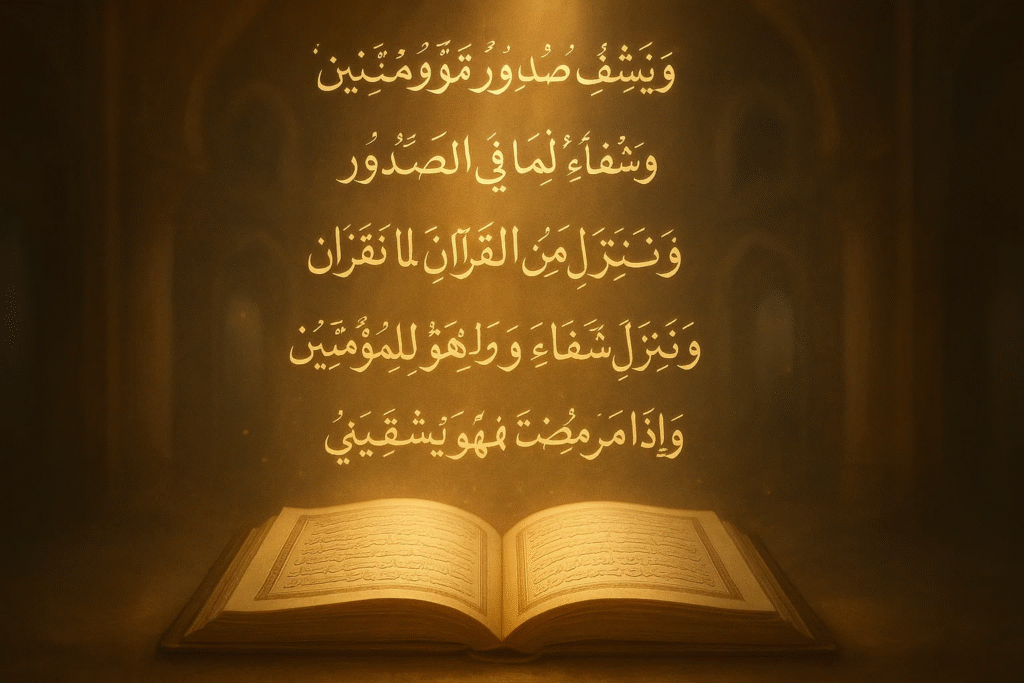 وَيَشِفُ صُدُورُ مَّوُومُنَنِين
وَشُفَآءِئُ لِمَا فَي الصَّدُوُر
وَنَنَنِزَلِ مَنُِ القَرآانِ لما نَقَزَان
وَنَنِزَلَِ شََفَاءِ وَ وَلهَِوُْ لِلِمُؤُمِّنِيُن
وَإِذَا مَرمضُِتَ فهَوَ يَشقِيَنيُ